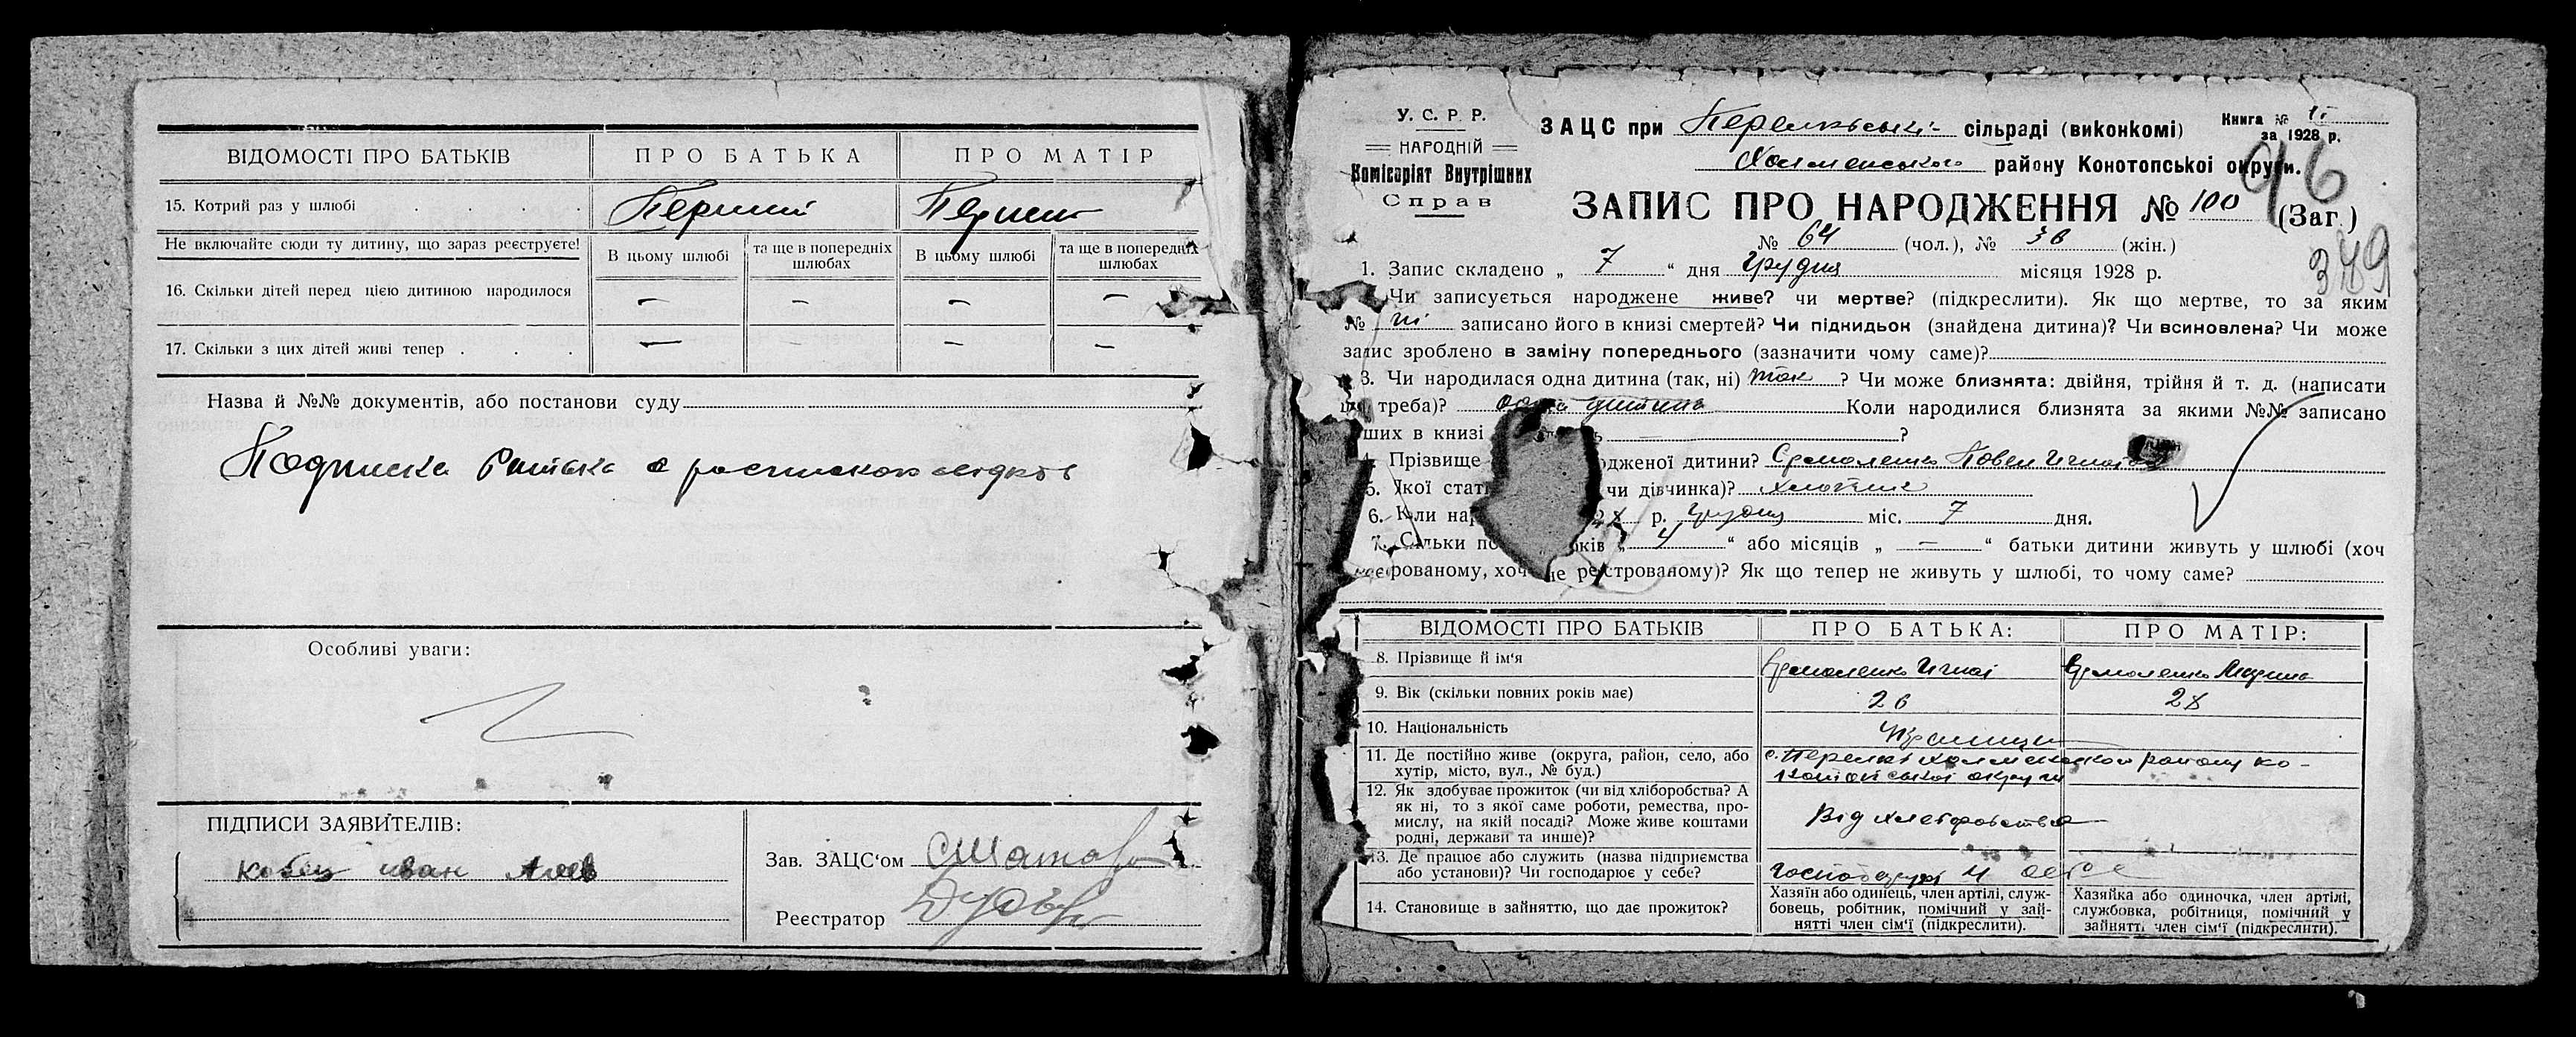 ВІДОМОСТІ ПРО БАТЬКІВ ПРО БАТЬКА ПРО МАТІР
15. Котрий раз у шлюбі Перший
Не включайте сюди ту дитину, що зараз реєструєте! В цьому шлюбі та ще в попередніх шлюбах В цьому шлюбі та ще в попередніх шлюбах
16. Скільки дітей перед цією дитиною народилося — — — —
17. Скільки з цих дітей живі тепер — — — —
Назва й №№ документів, або постанови суду
Подписка
Особливі уваги:
ПІДПИСИ ЗАЯВИТЕЛІВ:
иван
Зав. ЗАЦС‘ом
Реєстратор
У. С. Р. Р.
НАРОДНІЙ
Комісаріят Внутрішних
Справ
ЗАЦС при сільраді (виконкомі)
Книга №
за 1928 р.
району Конотопської округи.
96
ЗАПИС ПРО НАРОДЖЕННЯ № 100 (Заг.)
№ 64 (чол.), № 36 (жін.)
379
1. Запис складено „ 7 “ дня грудня місяця 1928 р.
Чи записується народжене живе? чи мертве? (підкреслити). Як що мертве, то за яким
№ ні записано його в книзі смертей? Чи підкидьок (знайдена дитина)? Чи всиновлена? Чи може
запис зроблено в заміну попереднього (зазначити чому саме)?
3. Чи народилася одна дитина (так, ні) так ? Чи може близнята: двійня, трійня й т. д. (написати
що треба)? одна дитина Коли народилися близнята за якими №№ записано
ших в книзі — ?
4. Прізвище дженої дитини? Ермоленко Повел
5. Якої стат чи дівчинка)? хлопчик
6. Коли на 28 р. грудня міс. 7 дня.
7. Скільки по оків „ 4 “ або місяців „ — “ батьки дитини живуть у шлюбі (хоч
реєстрованому, хоч не реєстрованому)? Як що тепер не живуть у шлюбі, то чому саме?
ВІДОМОСТІ ПРО БАТЬКІВ ПРО БАТЬКА: ПРО МАТІР:
8. Прізвище й ім‘я Ермоленко Игнат Ермоленко
9. Вік (скільки повних років має) 26 28
10. Національність Українці
11. Де постійно живе (округа, район, село, або
хутір, місто, вул., № буд.) с. району ко-
нотопської округи
12. Як здобуває прожиток (чи від хліборобства? А
як ні, то з якої саме роботи, ремества, про-
мислу, на якій посаді? Може живе коштами
родні, держави та инше)? Від хлеборобства
13. Де працює або служить (назва підприємства
або установи)? Чи господарює у себе? господарює у себе
14. Становище в зайняттю, що дає прожиток?
Хазяїн або одинець, член артілі, служ-
бовець, робітник, помічний у зай-
нятті член сім‘ї (підкреслити).
Хазяйка або одиночка, член артілі,
службовка, робітниця, помічний у
зайнятті член сім‘ї (підкреслити).